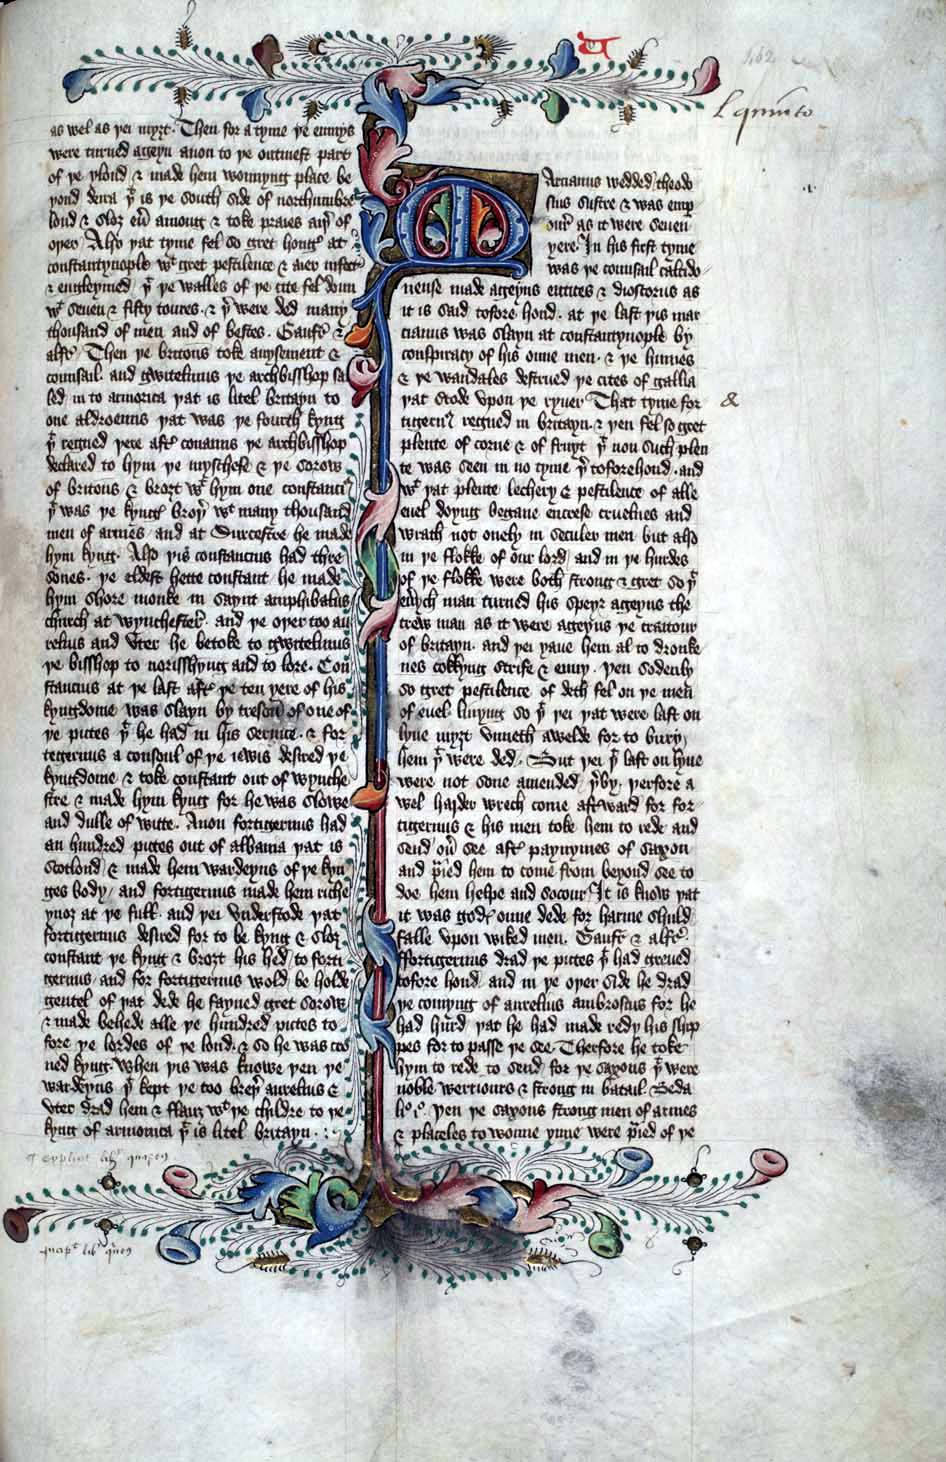 L quinto
as wel as yei myȝt. Then for a tyme ye enmys
were turned ageyn anon to ye outmest part
of ye ylond & made hem wonnyng place be
yond deira yt is ye south side of northumbre
lond & sloȝ eu̅ among & toke praies aȝȝ of
oyer. Also yat tyme fel so gret hongr at
constantynople wt gret pestilence & aier infect
& engleymed yt ye walles of ye cite fel doun
wt seuen & fifty toures. & yt were ded many
thousand of men and of bestes. Gaufr &
alfr. Then ye britons toke auysement &
counsail. and gwitelinus ye archbisshop sai
led in to armorica yat is litel britayn to
one aldroenus yat was ye fourth kyng
yt regned yere aftr conanus ye archbisshop
declared to hym ye myschefe & ye sorow
of britons & broȝt wt hym one constanci
yt was ye kynges broyr wt many thousand
men of armes. and at Surcestre he made
hym kyng. Also yis constancius had thre
sones. ye eldest hette constant he made
hym shore monke in saynt amphibalus
church at wynchester. and ye oyer too au
relius and Vter he betoke to gwitelinus
ye bisshop to norisshyng and to lore. Con
stancius at ye last aftr ye ten yere of his
kyngdome was slayn by treson of one of
ye pictes yt he had in his seruice. & for
tegerius a consoul of ye iewis desired ye
kyngdome & toke constant out of wynche
stre & made hym kyng for he was slowe
and dulle of witte. Anon fortigerius had
an hundred pictes out of albania yat is
Scotlond & made hem wardeyns of ye kyn
ges body / and fortigerius made hem riche
ynoȝ at ye full. and yei vnderstode yat
fortigerius desired for to be kyng & sloȝ
constant ye kyng & broȝt his hed / to forti
gerius / and for fortigerius wold be holde
gentel of yat dede he fayned gret sorow
& made behede alle ye hundred pictes to
fore ye lordes of ye lond. & so he was cro
ned kyng. When yis was knowe yen ye
wardeyns yt kept ye too breyr aurelius &
Vter drad hem & flaiȝ wt ye childre to ye
kyng of armorica yt is litel britayn.
Explicit libr quartus
Incipit libr quintus
Marcianus wedded theodo
sius sustre & was emp
our as it were seuen
yere. In his first tyme
was ye counsail calcido
nense made ageyns eutices & dioscorus as
it is said tofore hond. at ye last yis mar
cianus was slayn at constantynople by
conspiracy of his oune men. & ye hunies
& ye wandales destrued ye cites of gallia
yat stode vpon ye ryuer That tyme for
tigerius regned in britayn. & yen fel so gret
plente of corne & of fruyt yt non such plen
te was seen in no tyme yt tofore hond. and
wt yat plente lechery & pestilence of alle
euel doyng began encrese cruelnes and
wrath not onely in seculer men but also
in ye flokke of our lord / and in ye hirdes
of ye flokke were both strong & gret so yt
euerych man turned his speyr ageyns the
trew man as it were ageyns ye traitour
of britayn. and yei yaue hem al to dronke
nes cokkyng strife & enuy. yen sodenly
so gret pestilence of deth fel on ye men
of euel liuyng so yt yei yat were last on
lyue myȝt vnneth awelde for to bury
hem yt were ded. But yei yt last on lyue
were not sone amended yrby. yerfore a
wel harder wrech come afterward for for
tigerius & his men toke hem to rede and
send ouer see aftr paynymes of saxon
and praied hem to come from beyond see to
doe hem helpe and socour. It is know yat
it was godes oune dede for harme shuld
falle vpon wiked men. Gaufr & alfr.
ffortigerius drad ye pictes yt had greued
tofore hond. and in ye oyer side he drad
ye comyng of aurelius ambrosius for he
had hurd yat he had made redy his ship
pes for to passe ye see. Therfore he toke
hym to rede to send for ye saxons yt were
noble werriours & strong in batail. Beda
li° i°. yen ye saxons strong men of armes
& placeles to wonne ynne were praied of ye